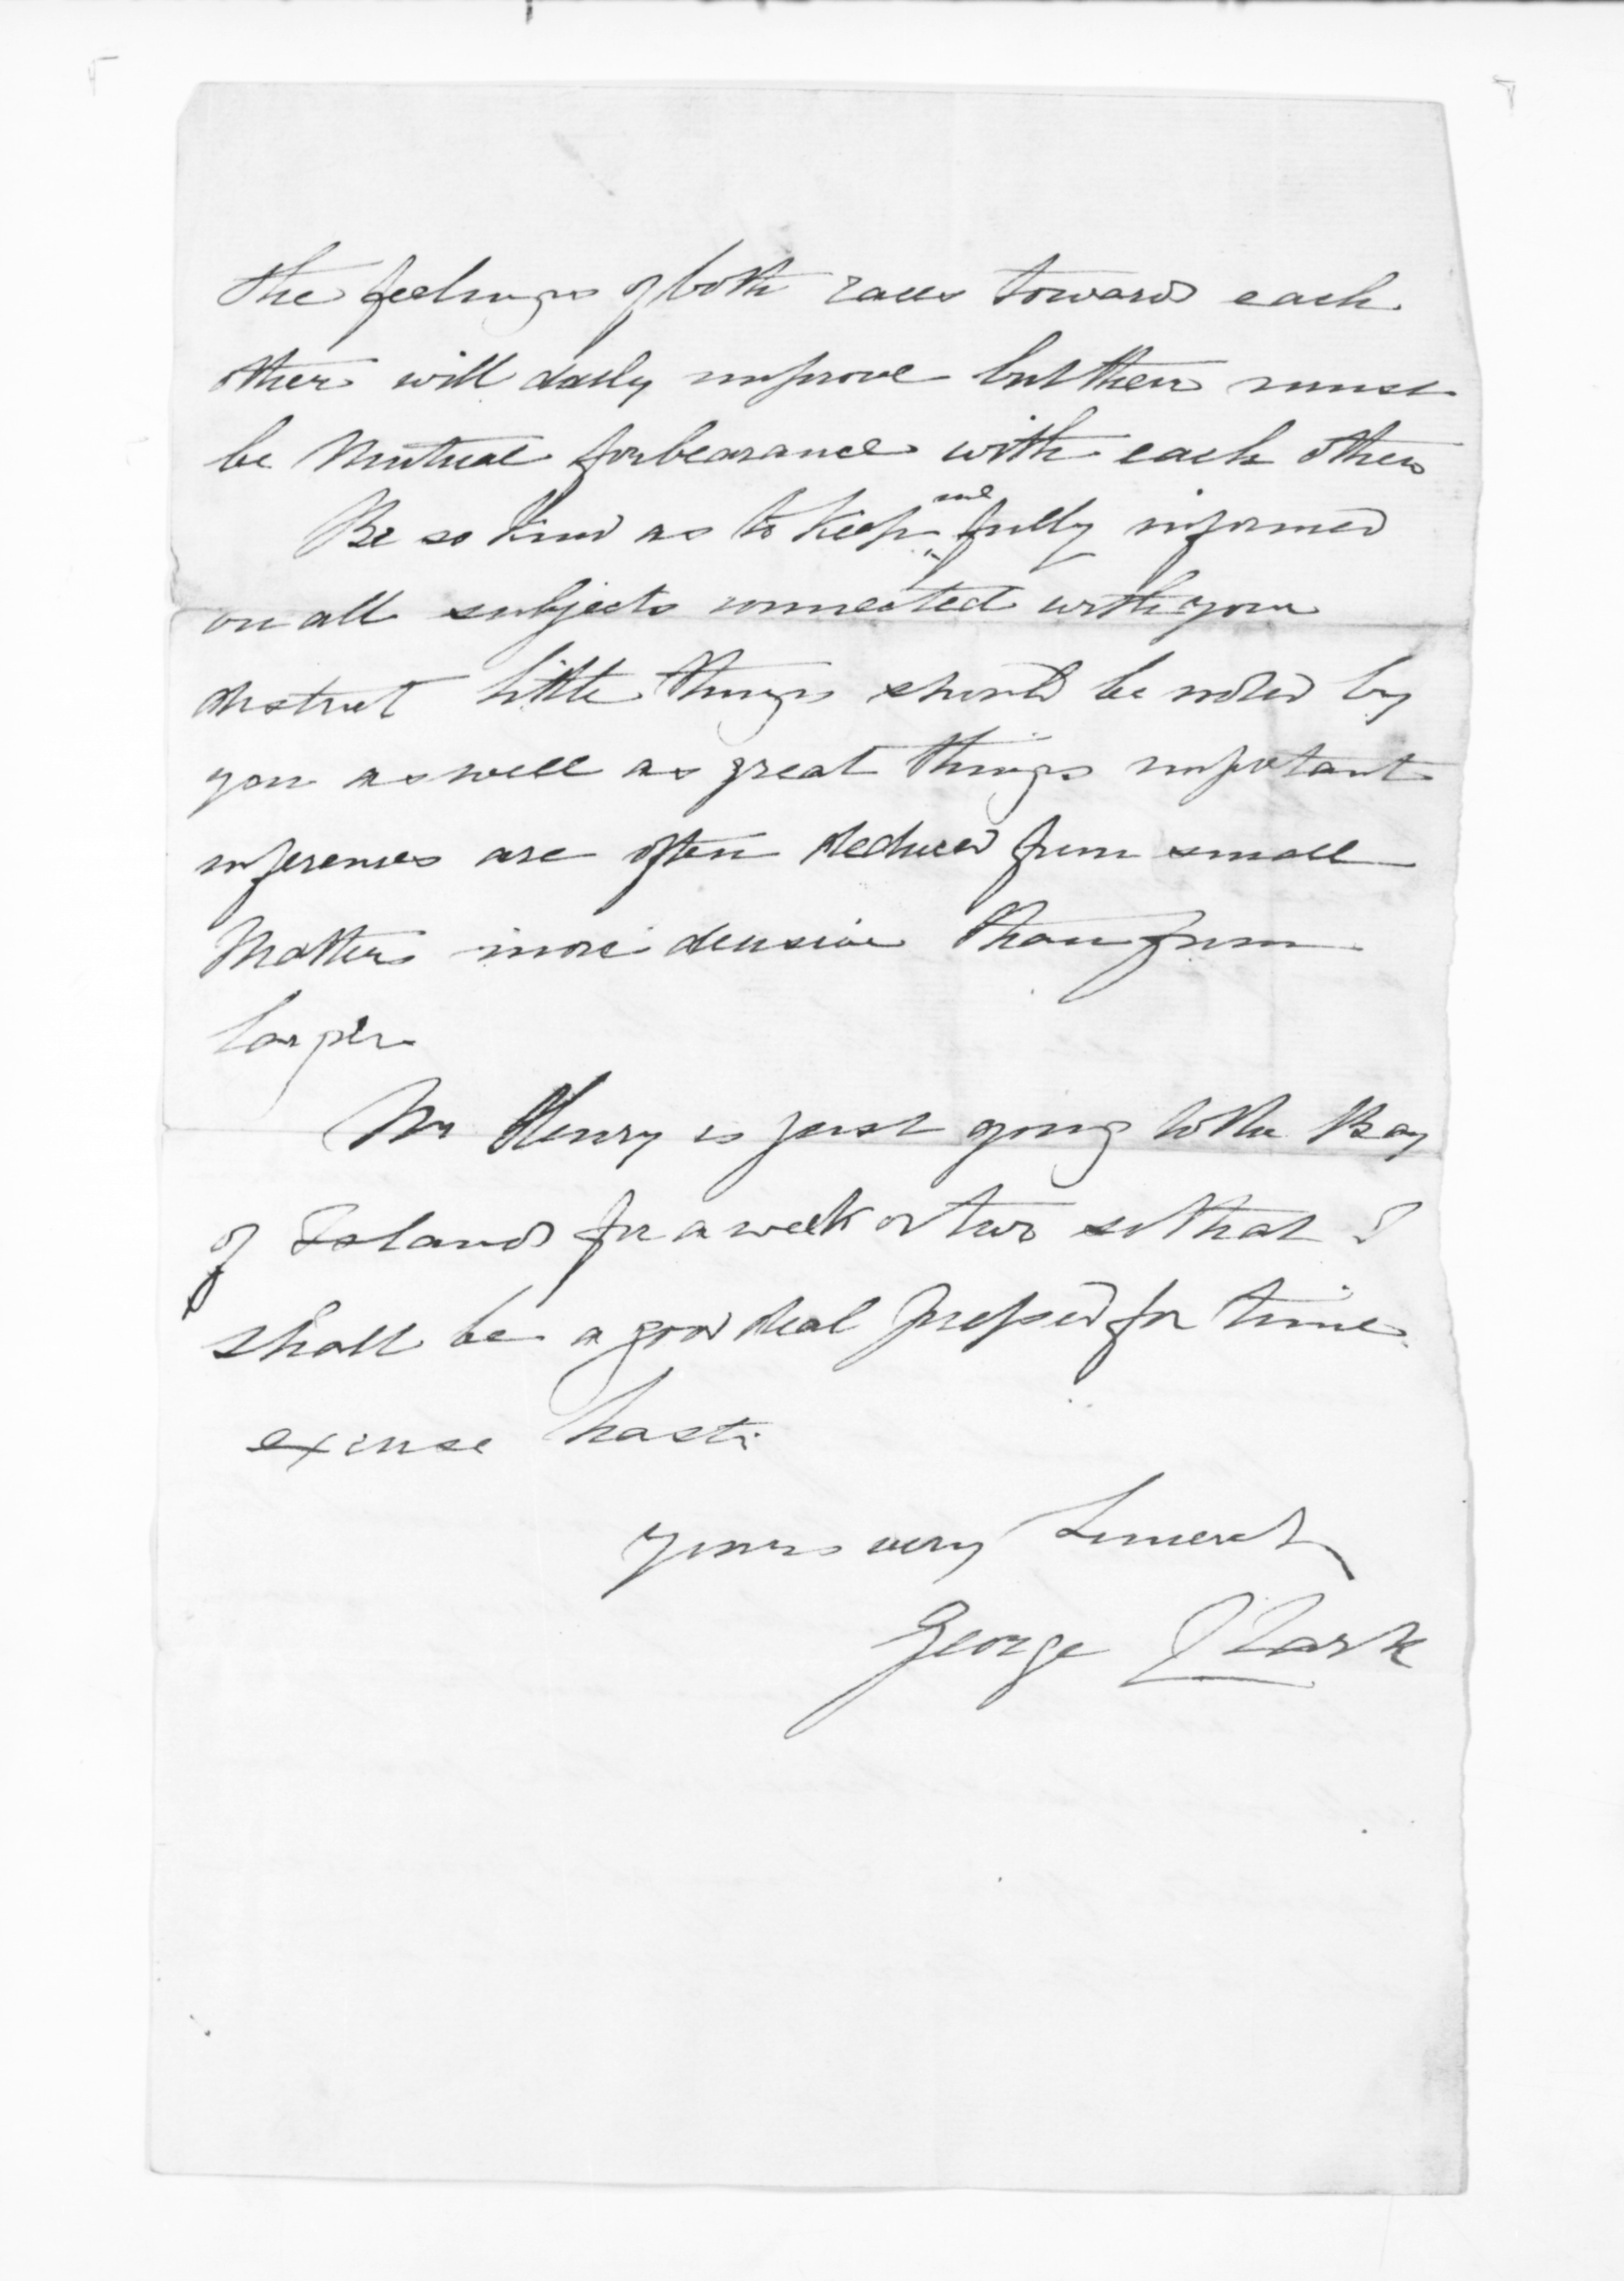 the feelings of both races towards each
other will daily improve but there must
be Mutual forbearance with each other
Be so kind as to keep me fully informed
on all subjects connected with your
district little things should be noted by
you as well as great things important
inferences are often deduced from small
Matters more decisive than from
larger
Mr Henry is just going to the Bay
of Islands for a week or two so that I
shall be a good deal pressed for time
excuse haste
yours very Sincerely
George Clark